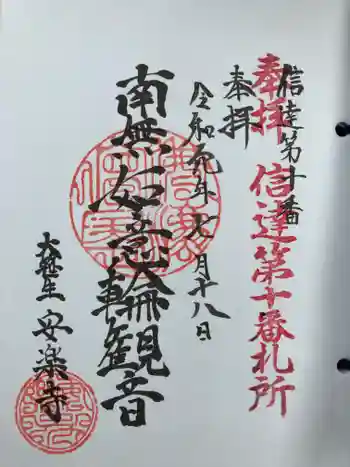 奉拝 信達第十番札所
信達第十番
奉拝
令和元年七月十八日
南無如意輪観音
大笹生 安楽寺